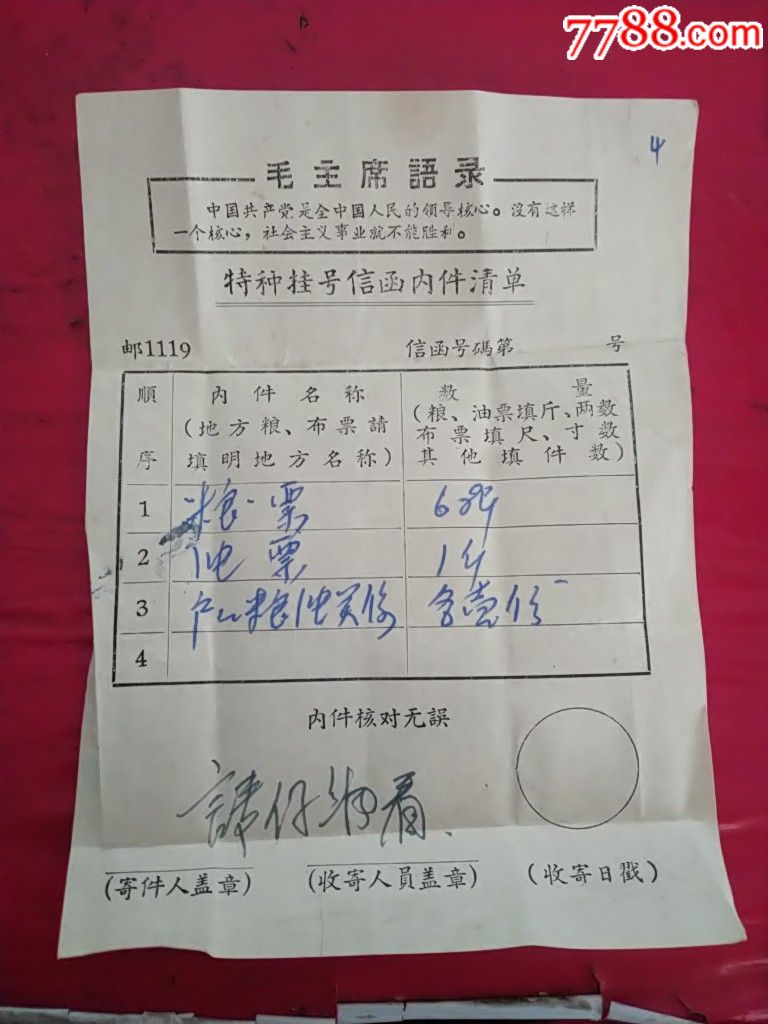 7788.com
4
毛主席語录
中国共产党是全中国人民的领导核心。沒有这样
一个核心，社会主义事业就不能胜利。
特种挂号信函内件清单
邮1119 信函号碼第 号
順序 内件名称（地方粮、布票請填明地方名称） 数量（粮、油票填斤、两数布票填尺、寸数其他填件数）
1 粮票
2 油票 1斤
3 粮油关係 各壹份
4
内件核对无誤
請仔細看.
（寄件人盖章） （收寄人員盖章） （收寄日戳）